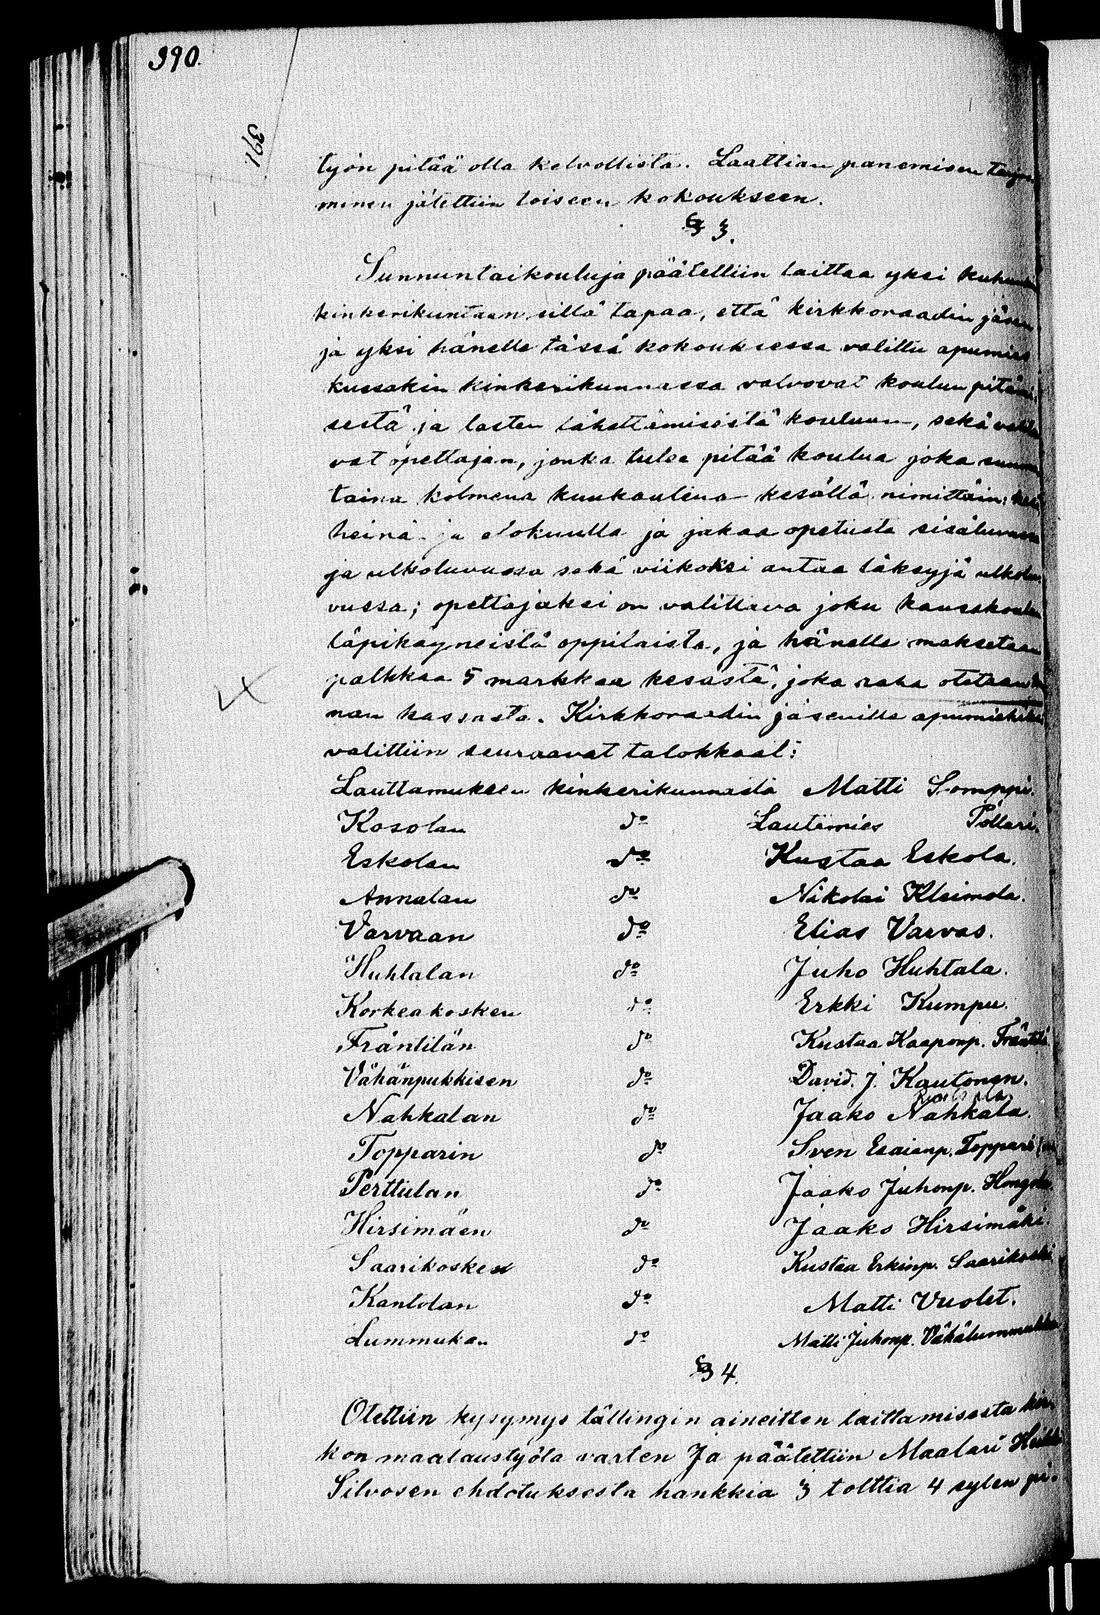 390.
391
työn pitää olla kelvollista. Laattian panemisen
minen jätettiin toiseen kokoukseen.
§ 3.
Sunnuntaikouluja päätettiin laittaa yksi
kinkerikuntaan sillä tapaa, että kirkkoraadin jäsen
ja yksi hänelle tässä kokouksessa valittu apumies
kussakin kinkerikunnassa valvovat koulun pitämi-
sestä ja lasten lähettämisestä kouluun, sekä
vat opettajan, jonka tulee pitää koulua joka sunnun
taina kolmena kuukautena kesällä nimittäin: kesä
heinä ja elokuulla ja jakaa opetusta sisäluvussa
ja ulkoluvussa sekä viikoksi antaa läksyjä ulkolu-
vussa; opettajaksi on valittava joku kansakoulun
läpikäyneistä oppilaista, ja hänelle maksetaan
palkkaa 5 markkaa kesästä, joka raha otetaan
nan kassasta. Kirkkoraadin jäsenille apumiehiksi
valittiin seuraavat talokkaat:
Lauttamuksen kinkerikunnasta Matti Somppi.
Kosolan do Lautamies Pollari.
Eskolan do Kustaa Eskola.
Annalan do Nikolai Kleimola.
Varvaan do Elias Varvas.
Huhtalan do Juho Huhtala.
Korkeakosken do Erkki Kumpu.
Fräntilän do Kustaa Kaaponp. Fräntilä
Vähänpukkisen do David. J. Kautonen.
Nahkalan do Jaako Nahkala.
Topparin do Sven Esaianp. Toppari
Perttulan do Jaako Juhonp.
Hirsimäen do Jaako Hirsimäki.
Saarikosken do Kustaa Erkinp. Saarikoski
Kantolan do Matti Vuolet.
Lummukan do Matti Juhonp. Vähälummukka
§ 4.
Otettiin kysymys tällingin aineitten laittamisesta kir-
kon maalaustyötä varten Ja päätettiin Maalari Heikki
Silvosen ehdotuksesta hankkia 3 tolttia 4 sylen